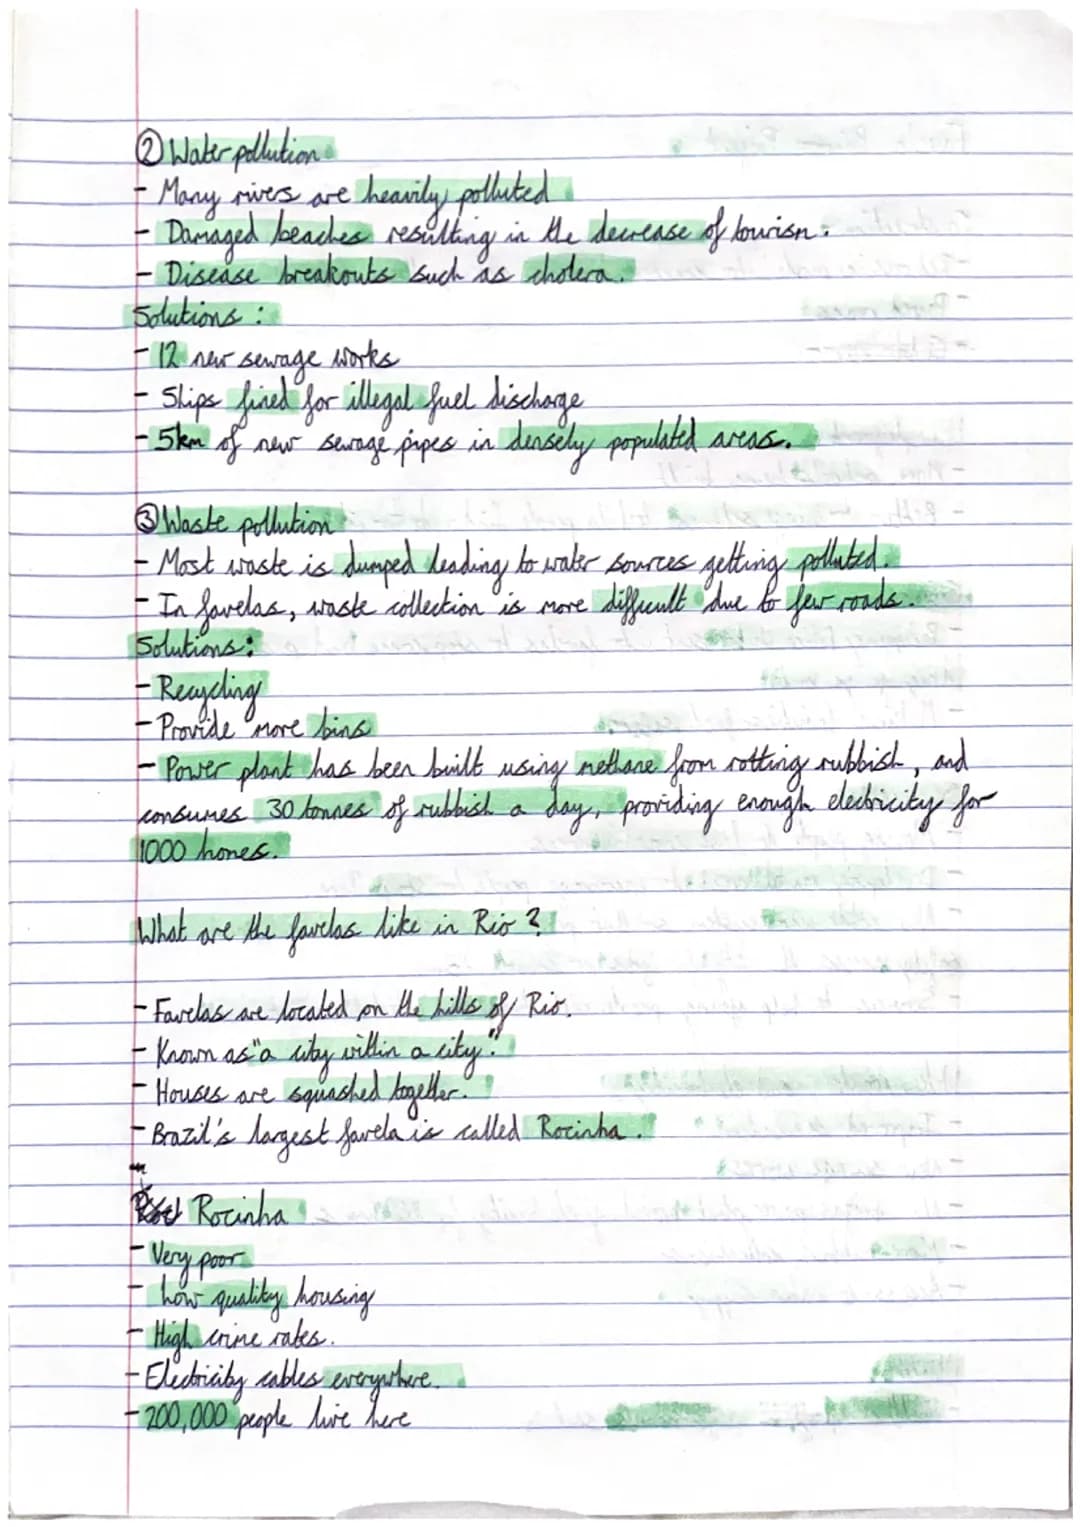 ② Water pollution
- Many rivers are heavily polluted
- Damaged beaches resulting in the decrease of tourism.
- Disease breakouts such as cholera.
Solutions :
- 12 new sewage works
- Ships fined for illegal fuel discharge
- 5km of new sewage pipes in densely populated areas.
③ Waste pollution
- Most waste is dumped leading to water sources getting polluted.
- In favelas, waste collection is more difficult due to few roads.
Solutions:
- Recycling
- Provide more bins
- Power plant has been built using methane from rotting rubbish, and
consumes 30 tonnes of rubbish a day, providing enough electricity for
1000 homes.
What are the favelas like in Rio?
- Favelas are located on the hills of Rio.
- Known as "a city within a city".
- Houses are squashed together.
- Brazil's largest favela is called Rocinha.
Rocinha
- Very poor
- Low quality housing
- High crime rates.
- Electricity cables everywhere.
- 200,000 people live here